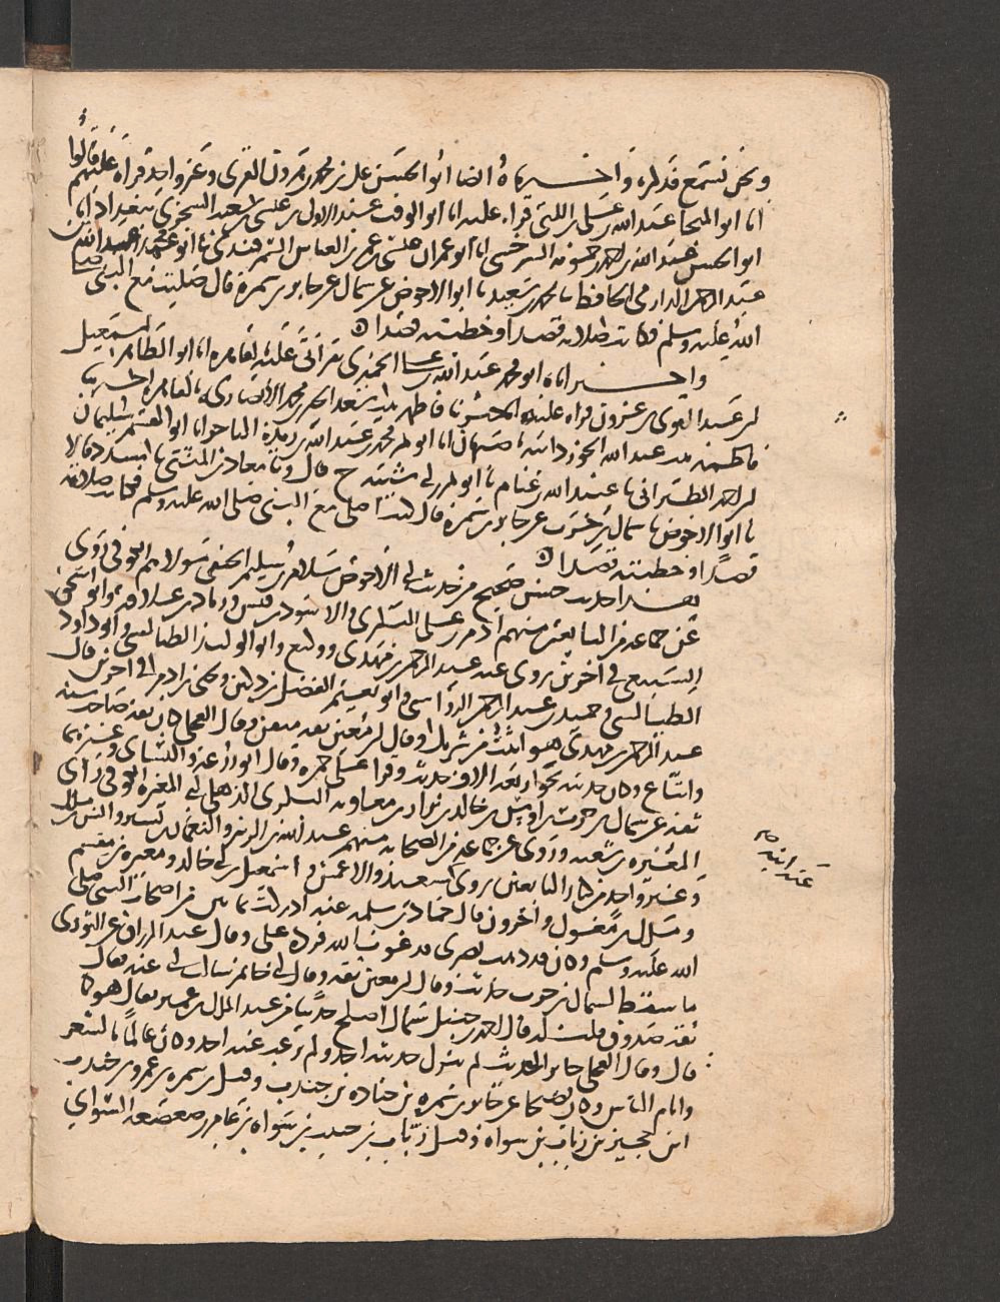 ونحن نسمع قدامه واخبرناه ايضا ابو الحسن علي بن محمد بن هرون القري وغير واحد قراة عليهم قالوا
انا ابو المنجا عبد الله بن علي اللتي قراة عليه انا ابو الوقت عبد الاول بن عيسى بن شعيب السجزي ببغداد انا
ابو الحسن عبد الله بن احمد بن حمويه السرخسي انا ابو عمران عيسى بن عمر بن العباس السمرقندي نا ابو محمد عبد الله بن
عبد الرحمن الدارمي الحافظ نا محمد بن سعيد نا ابو الاحوص عن سماك عن جابر بن سمرة قال صليت مع النبي صلى
الله عليه وسلم فكانت صلاته قصدا وخطبته قصدا ه
واخبرناه ابو محمد عبد الله بن علي بقراتي عليه بالقاهرة انا ابو الطاهر اسمعيل
بن عبد القوي بن عزون قراة عليه نا فاطمة بنت سعد الخير بن محمد الانصاري بالقاهرة اخبرتنا
فاطمة بنت عبد الله الجوزدانية باصبهان انا ابو بكر محمد بن عبد الله بن ريذة التاجر انا ابو القسم سليمان
بن احمد الطبراني نا عبيد الله بن غنام نا ابو بكر بن ابي شيبة ح قال ونا معاذ بن المثنى نا مسدد قالا
نا ابو الاحوص نا سماك بن حرب عن جابر بن سمرة قال كنت اصلي مع النبي صلى الله عليه وسلم فكانت صلاته
قصدا وخطبته قصدا ه
هذا حديث حسن صحيح من حديث ابي الاحوص سلام بن سليم الحنفي مولاهم الكوفي روى
عن جماعة من التابعين منهم ادم بن علي البكري والاسود بن قيس وزياد بن علاقة وابو اسحق
السبيعي في اخرين روى عنه عبد الرحمن بن مهدي ووكيع وابو الوليد الطيالسي وابو داود
الطيالسي وحميد بن عبد الرحمن الرواسي وابو نعيم الفضل بن دكين ويحيى بن ادم في اخرين قال
عبد الرحمن بن مهدي هو اثبت من شريك وقال ابن معين ثقة متقن وقال العجلي كان ثقة صاحب سنة
واتباع وكان حديثه نحو اربعة الاف حديث وقرا على حمزة وقال ابو زرعة والنسائي وغيرهما
ثقة عن سماك بن حرب بن اوس بن خالد بن نزار بن معاوية البكري الذهلي ابي المغيرة الكوفي راى
المغيرة بن شعبة وروى عن جماعة من الصحابة منهم عبد الله بن الزبير والنعمان بن بشير وانس بن مالك
وغير واحد من كبار التابعين روى شعبة والاعمش واسمعيل بن ابي خالد ومغيرة بن مقسم
ومالك بن مغول واخرون قال حماد بن سلمة عنه ادركت ثمانين من اصحاب النبي صلى
الله عليه وسلم وكان قد ذهب بصري فدعوت الله فرده علي وقال عبد الرزاق عن الثوري
ما سقط لسماك بن حرب حديث وقال ابن معين ثقة وقال ابن ابي حاتم سالت ابي عنه فقال
ثقة صدوق قلت له قال احمد بن حنبل سماك اصلح حديثا من عبد الملك بن عمير فقال هو كما
قال وقال العجلي جائز الحديث لم يترك حديثه احد ولم يرغب عنه احد وكان عالما بالشعر
وايام الناس وكان فصيحا عن جابر بن سمرة بن جنادة بن جندب وقيل بن سمرة بن عمرو بن جندب
ابن حجير بن زباب بن سواه وقيل زباب بن حبيب بن سواه بن عامر بن صعصعة السوائي
عنه ابنه